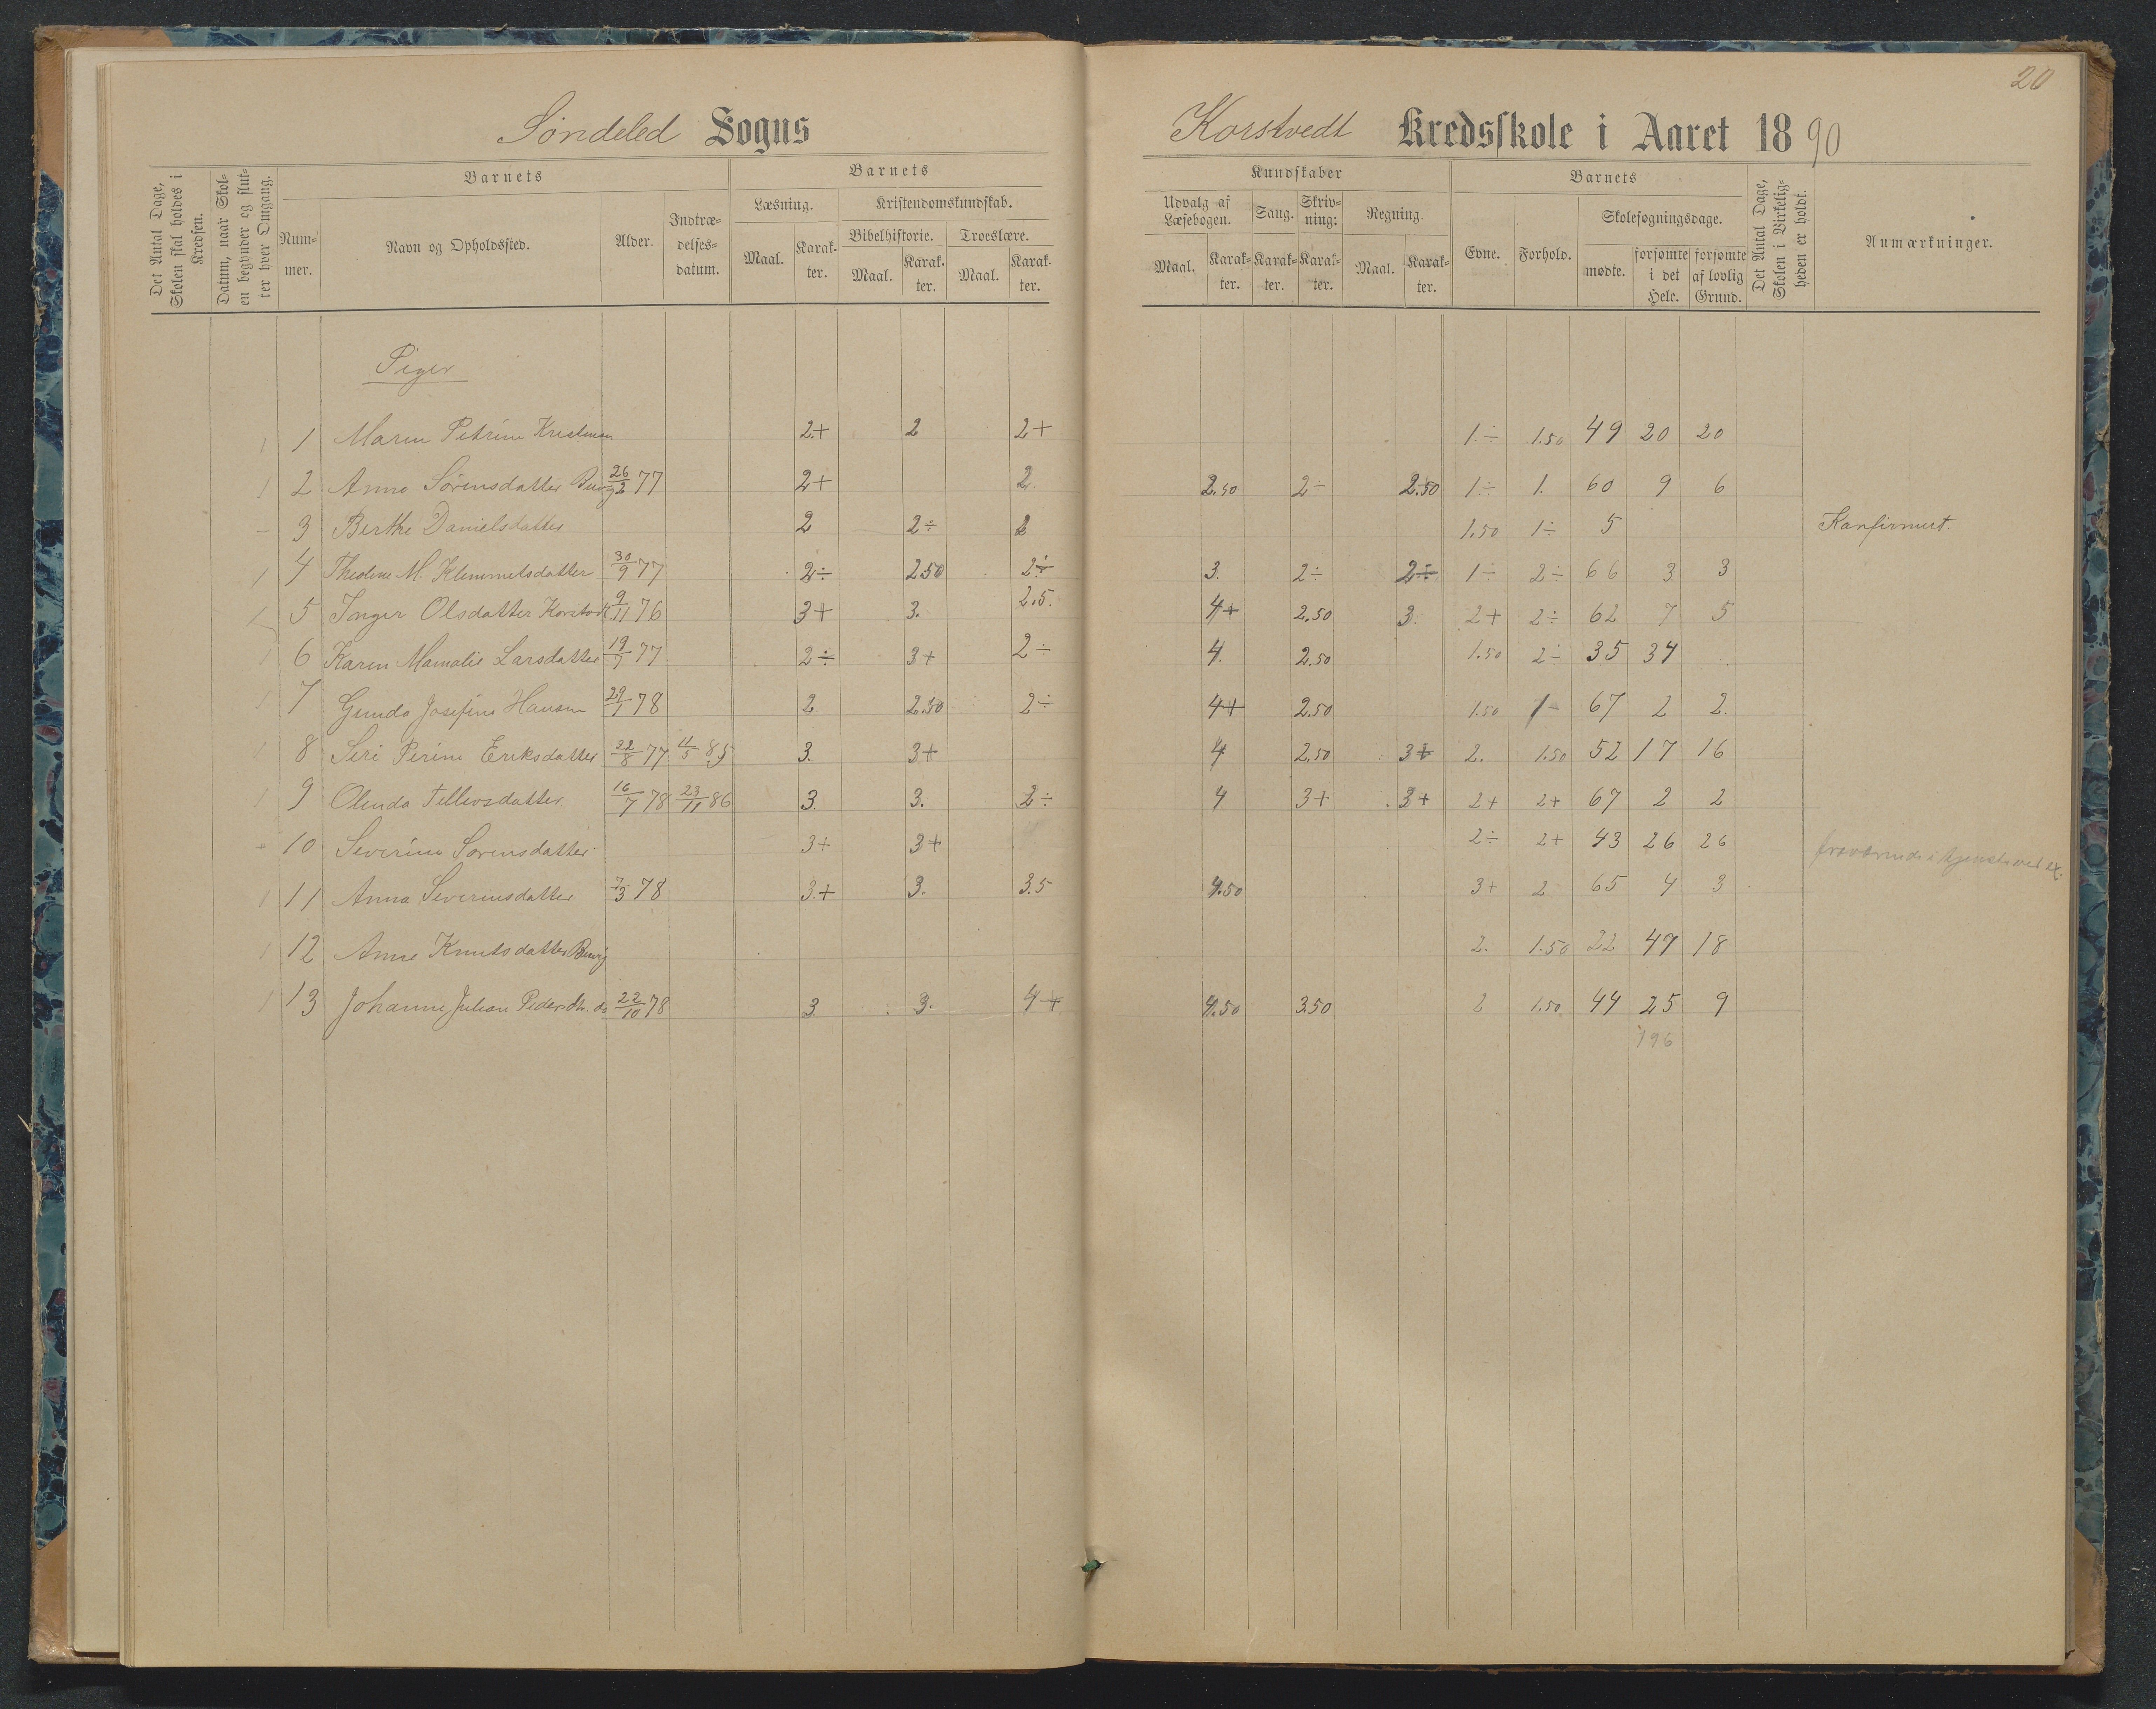 20
Søndeled Sogns
Korstvedt Kredsskole i Aaret 1890
Det Antal Dage, Skolen skal holdes i Kredsen.
Datum, naar Skolen begynder og slutter hver Omgang.
Barnets
Nummer.
Navn og Opholdssted.
Alder.
Indtrædelsesdatum.
Barnets
Læsning.
Maal. Karakter.
Kristendomskundskab.
Bibelhistorie.
Maal. Karakter.
Troeslære.
Maal. Karakter.
Kundskaber
Udvalg af Læsebogen.
Maal. Karakter.
Sang.
Karakter.
Skrivning:
Karakter.
Regning.
Maal. Karakter.
Barnets
Evne. Forhold.
Skolesøgningsdage.
mødte. forsømte i det Hele. forsømte af lovlig Grund.
Det Antal Dage, Skolen i Virkeligheden er holdt.
Anmærkninger.
Piger
1 Maren Petrine 2+ 2 2+ 1.÷ 1.50 49 20 20
2 Anne Sørensdatter 26/2 77 2+ 2 2.50 2÷ 2.50 1÷ 1. 60 9 6
3 Berthe Danielsdatter 2 2÷ 2 1.50 1÷ 5 Konfirmert.
4 Theoline M. Klemmetsdatter 30/9 77 2÷ 2.50 2÷ 3. 2÷ 2÷ 1÷ 2÷ 66 3 3
5 Inger Olsdatter 9/11 76 3+ 3. 2.5. 4+ 2.50 3. 2+ 2÷ 62 7 5
6 Karen Mamalie Larsdatter 19/7 77 2÷ 3+ 2÷ 4. 2.50 1.50 2÷ 35 34
7 Gunda Josefine Hansen 29/1 78 2 2.50 2÷ 4+ 2.50 1.50 1- 67 2 2.
8 Seri Perine Eriksdatter 22/8 77 11/5 85 3. 3+ 4 2.50 3+ 2. 1.50 52 17 16
9 Olenda Tellevsdatter 16/7 78 23/11 86 3. 3. 2÷ 4 3+ 3+ 2+ 2+ 67 2 2
10 Severine Sørensdatter 3+ 3+ 2÷ 2+ 43 26 26 fraværende i tjeneste ved ex.
11 Anna Severinsdatter 7/3 78 3.+ 3. 3.5 4.50 3+ 2 65 4 3
12 Anne Knutsdatter Buvig 2. 1.50 22 47 18
13 Johanne Juliane Pedersdtr. do 22/10 78 3. 3. 4+ 4.50 3.50 2 1.50 44 25 9
196